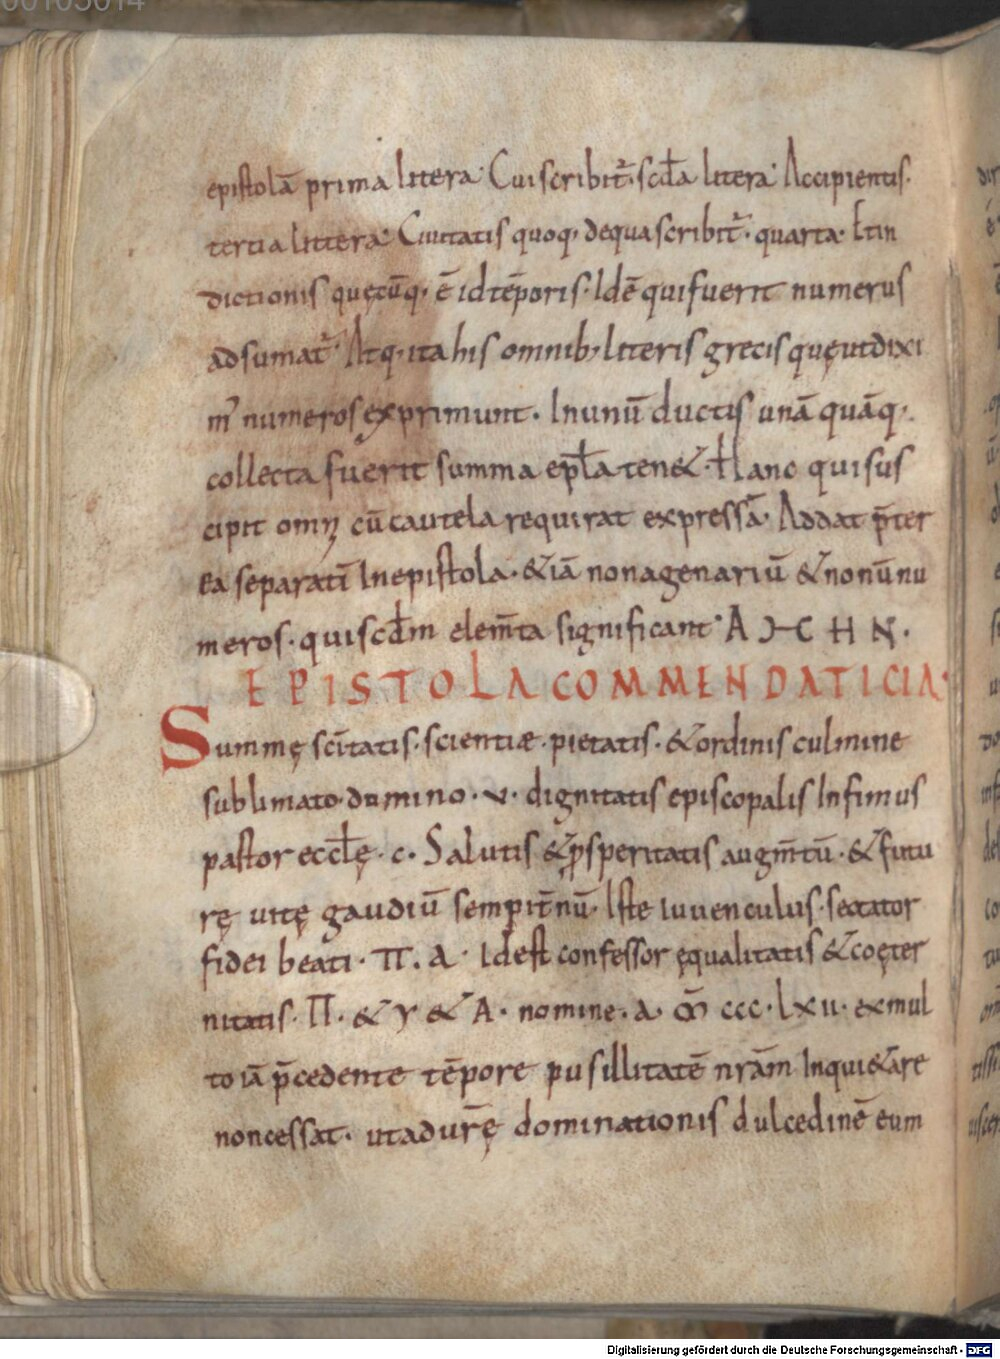 00105014
epistolā prima littera· Cui scribit̄· scd̄a littera· Accipientis·
tertia littera· Ciuitatis quoq· de qua scribit̄· quarta· Et in
dictionis quęcūq· ē id tēporis· Idē qui fuerit numerus
adsumat̄· Atq· ita his omnib· literis grecis quę ut dixi
m̄ numeros exprimunt· In unū ductis unā quāq·
collecta fuerit summa epl̄a tene&· Hanc qui sus
cipit omī cū cautela requirat expressā· Addat p̄ter
ea separatī In epistola· &iā nonagenariū & nonū nu
meros· qui scd̄m elem̄ta significant· A
EPISTOLA COMMENDATICIA·
Summę sci̅tatis· scientiæ· pietatis· & ordinis culmine
sublimato domino· v· dignitatis episcopalis Infimus
pastor eccl̄ę· c· Salutis & ꝓsperitatis augm̄tū· & futu
rę uitę gaudiū sempit̄nū· Iste iuuenculus· sectator
fidei beati· Π· A· Idest confessor ęqualitatis & coęter
nitatis· Π· & Y & A· nomine· a· ccc· lxu· ex mul
to iā p̄cedente tēpore pusillitatē nr̄ām Inqui&are
non cessat· ut ad ur̄ę dominationis dulcedinē eum
Digitalisierung gefördert durch die Deutsche Forschungsgemeinschaft - DFG